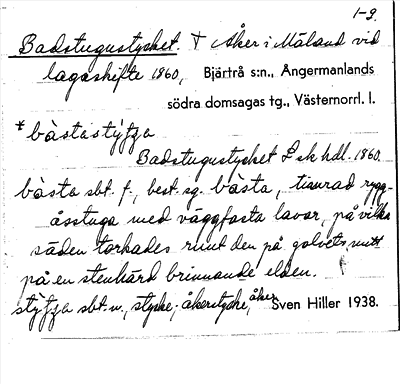 1-9.
Badstugustycket. † Åker i Måland vid
lagaskifte 1860, Bjärtrå s:n., Ångermanlands
södra domsagas tg., Västernorrl. l.
* bàstastýʃʒa
Badstugustycket L sk hdl. 1860.
bàsta sbt. f., best. sg. bàsta, timrad rygg-
åsstuga med väggfasta lavar, på vilka
säden torkades runt den på golvets mitt
på en stenhärd brinnande elden.
stýʃʒa sbt. n., stycke; åkerstycke, åker
Sven Hiller 1938.